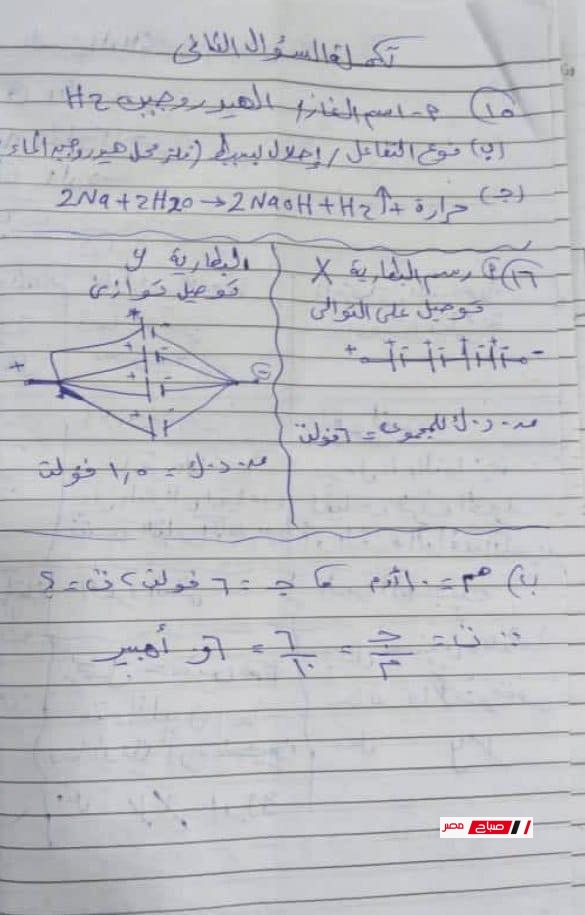 تكملة السؤال الثانى
(١٥) م- اسم الغاز / الهيدروجين H2
(ب) نوع التفاعل / إحلال بسيط (فلز محل هيدروجين الماء)
(جـ) 2Na + 2H2O → 2NaOH + H2↑ + حرارة
(١٦) م رسم البطارية X
توصيل على التوالى
+ -
ق.د.ك للمجموعة = ٦ فولت
البطارية y
توصيل توازى
+ -
ق.د.ك = ١,٥ فولت
ب) م = ١٠ أوم، جـ = ٦ فولت، ت = ؟
∴ ت = جـ/م = ٦/١٠ = ٦,. أمبير
صباح مصر